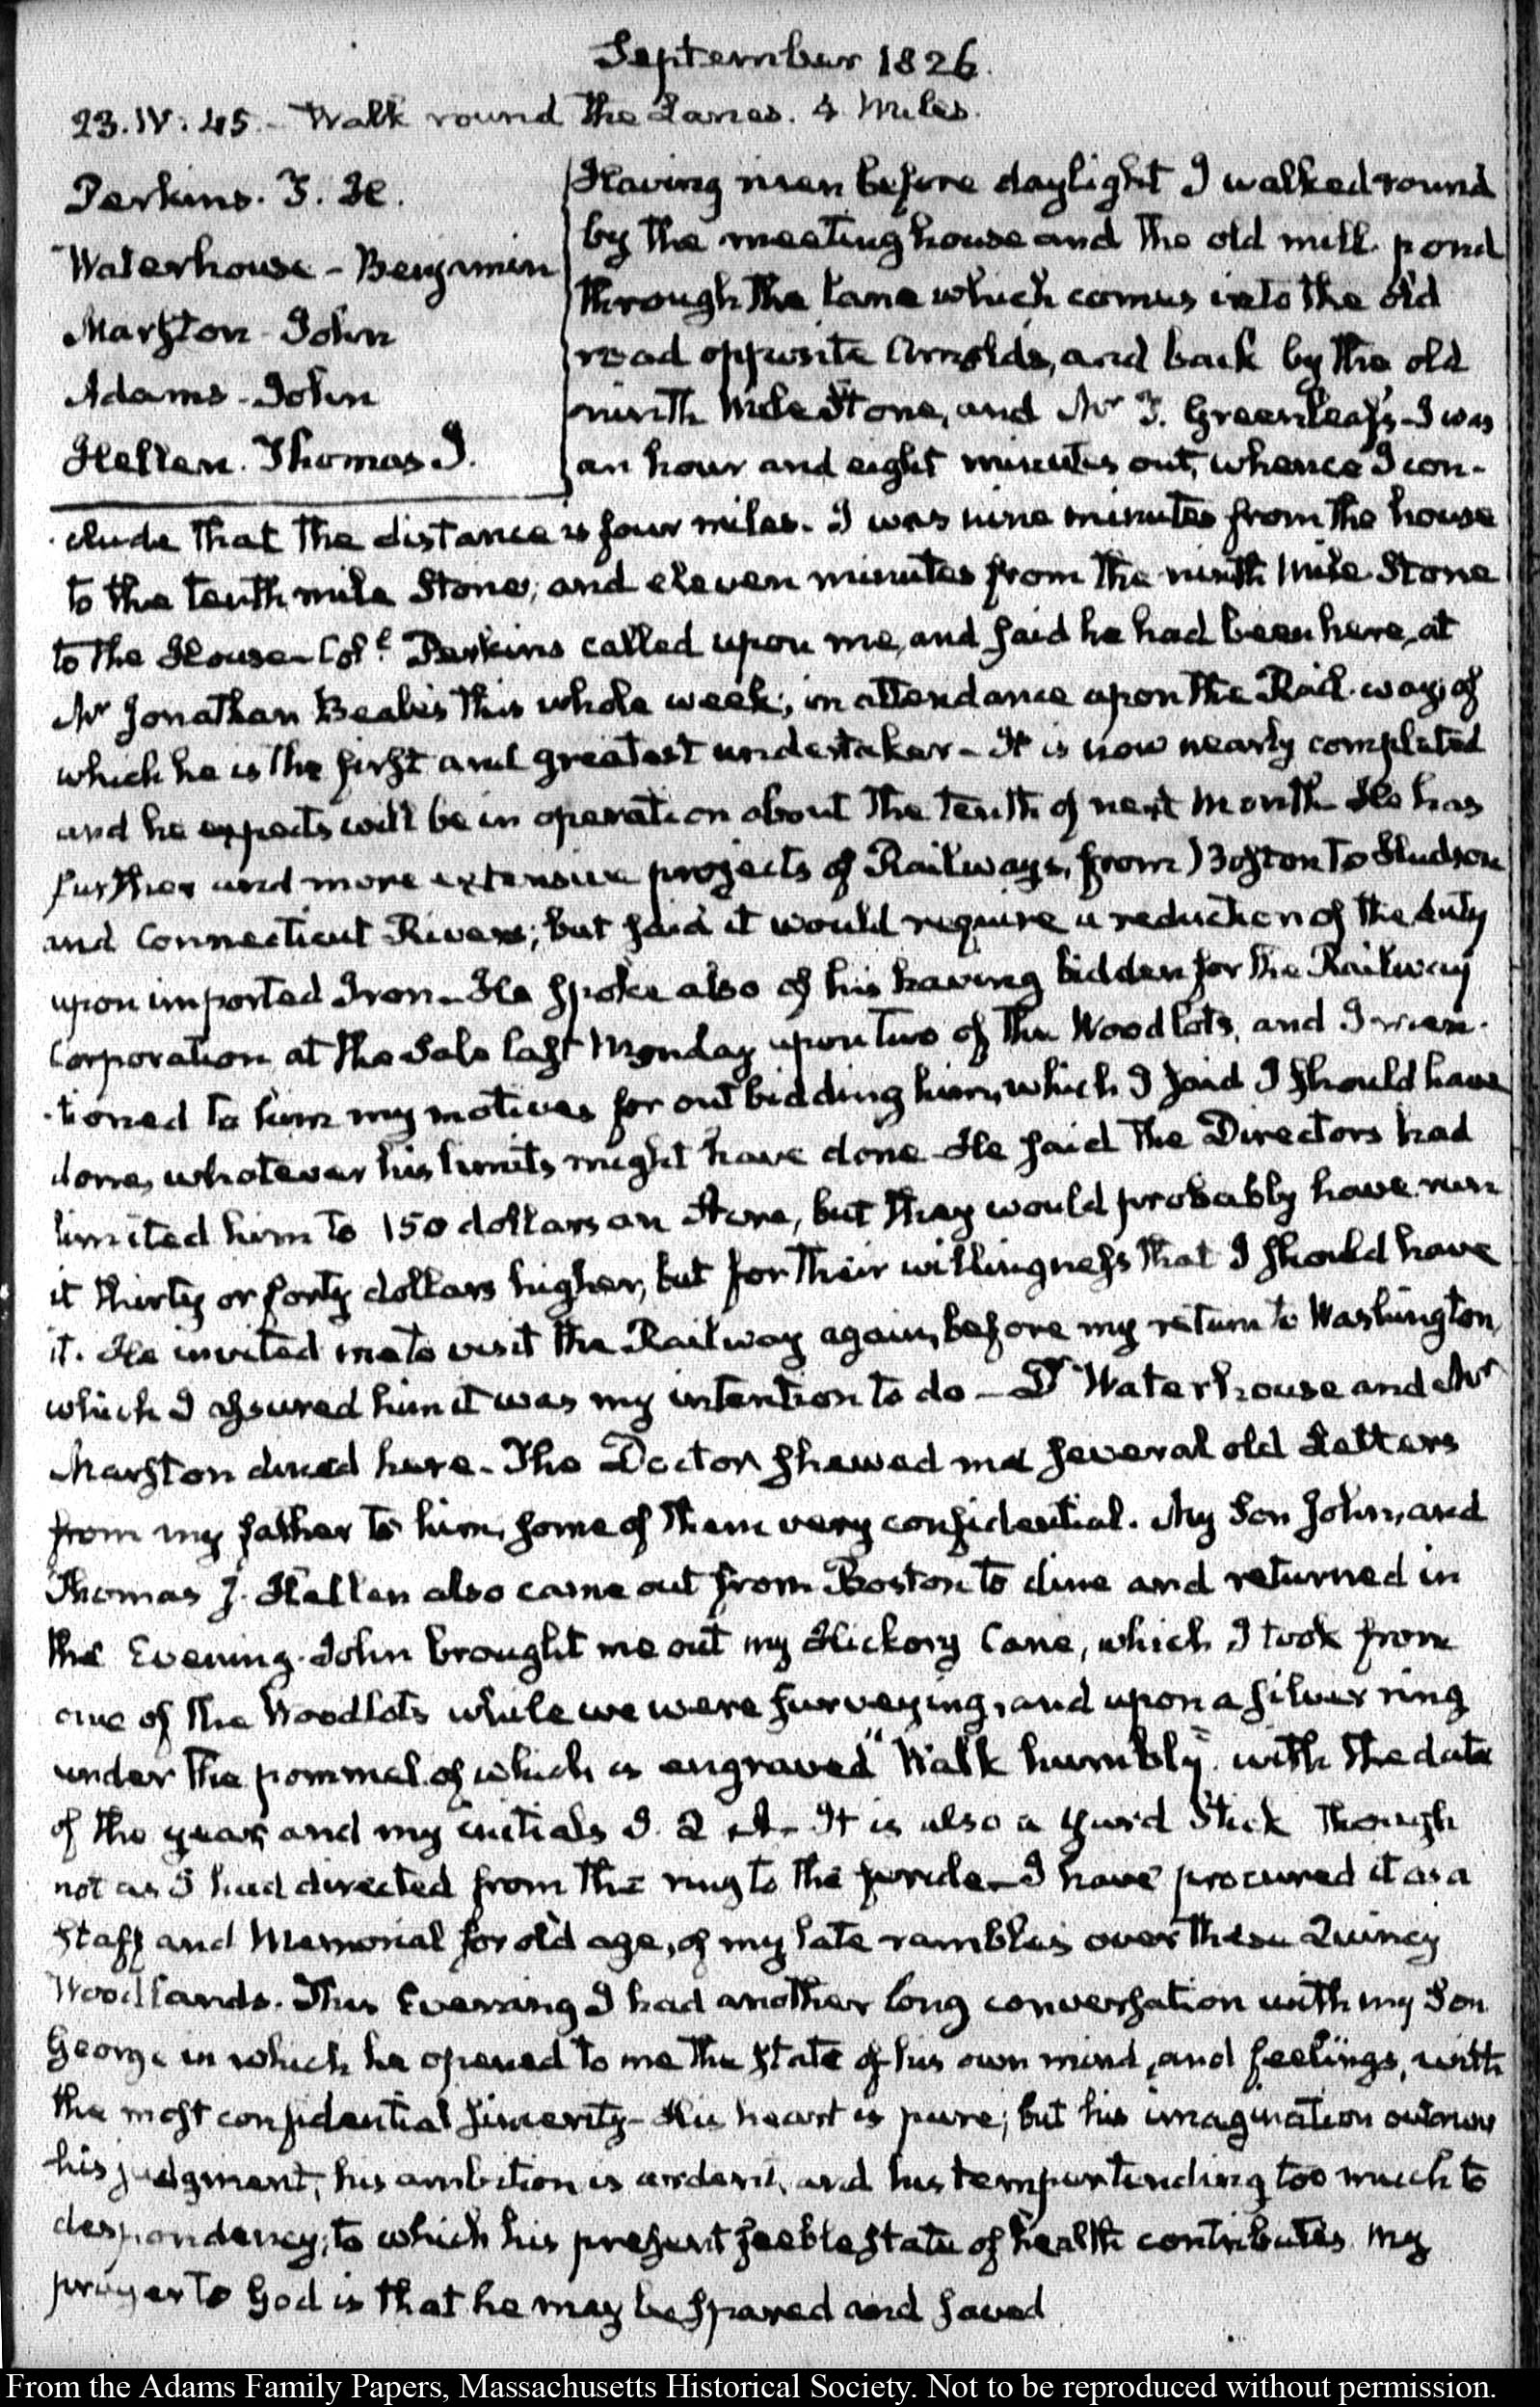 September 1826.
23. IV: 45. - Walk round the Lanes. 4 Miles.
Perkins. T. H.
Waterhouse - Benjamin
Marston - John
Adams - John
Hellen. Thomas J.
Having risen before daylight I walked round
by the meeting house and the old mill pond
through the lane which comes into the old
road opposite Arnolds, and back by the old
ninth Mile Stone, and Mr T. Greenleaf's - I was
an hour and eight minutes out, whence I con-
clude that the distance is four miles. I was nine minutes from the house
to the tenth mile Stone; and eleven minutes from the ninth Mile Stone
to the House - Coll. Perkins called upon me, and said he had been here, at
Mr Jonathan Beale's this whole week, in attendance upon the Rail-way, of
which he is the first and greatest undertaker - It is now nearly completed
and he expects will be in operation about the tenth of next Month - He has
further and more extensive projects of Railways, from Boston to Hudson
and Connecticut Rivers; but said it would require a reduction of the duty
upon imported Iron - He spoke also of his having bidden for the Railway
Corporation at the Sale last Monday upon two of the Woodlots, and I men-
-tioned to him my motives for outbidding him, which I said I should have
done, whatever his limits might have done - He said the Directors had
limited him to 150 dollars an Acre, but they would probably have run
it thirty or forty dollars higher, but for their willingness that I should have
it. He invited me to visit the Railway again, before my return to Washington,
which I assured him it was my intention to do - Dr Waterhouse and Mr
Marston dined here - The Doctor shewed me several old Letters
from my father to him, some of them very confidential. My Son John, and
Thomas J. Hellen also came out from Boston to dine and returned in
the Evening. John brought me out my Hickory Cane, which I took from
one of the Woodlots while we were surveying, and upon a silver ring
under the pommel of which is engraved "Walk humbly" with the date
of the year, and my initials J. Q. A - It is also a yard Stick though
not as I had directed from the ring to the ferule - I have procured it as a
staff and Memorial for old age, of my late rambles over these Quincy
Woodlands. This Evening I had another long conversation with my Son
George in which he opened to me the state of his own mind, and feelings, with
the most confidential sincerity - His heart is pure; but his imagination outruns
his judgment, his ambition is ardent, and his temper tending too much to
despondency; to which his present feeble state of health contributes. My
prayer to God is that he may be spared and saved
From the Adams Family Papers, Massachusetts Historical Society. Not to be reproduced without permission.